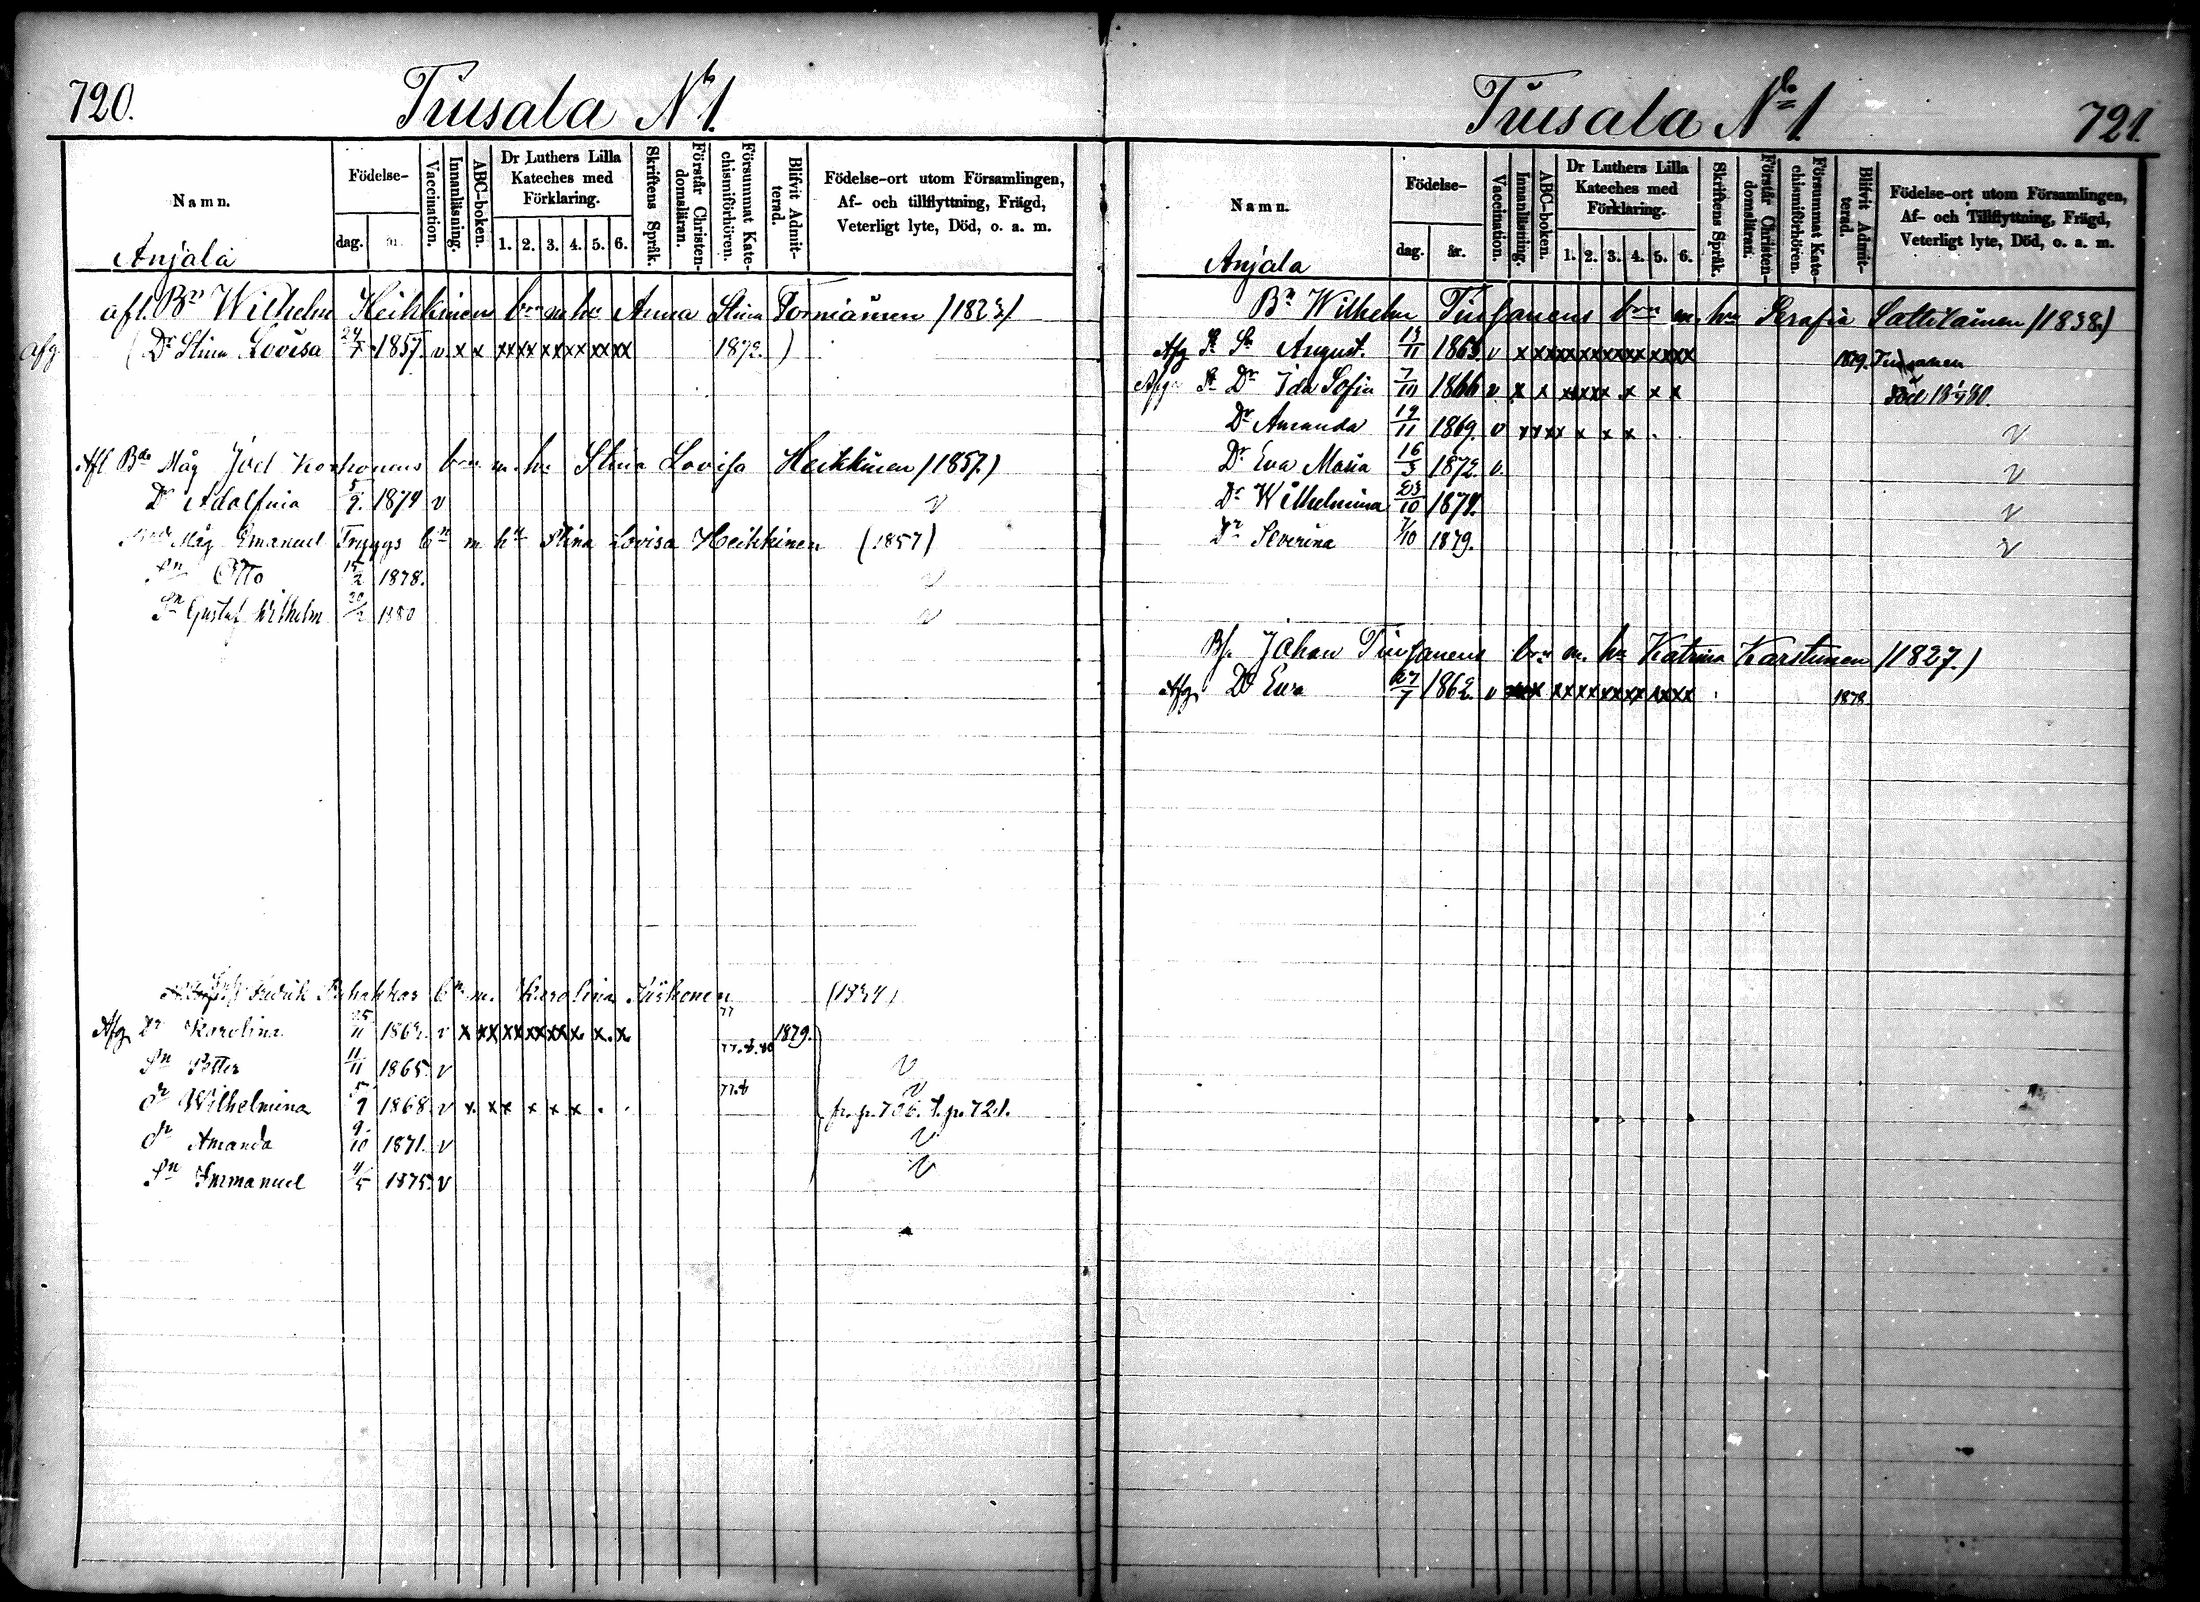 720.
Tuusala No 1.
Namn.
Födelse-
dag.
Vaccination.
Innanläsning.
ABC-boken.
Dr Luthers Lilla Kateches med Förklaring.
1. 2. 3. 4. 5. 6.
Skriftens Språk.
Förstår Christendomsläran.
Försummat Katechismiförhören.
Blifvit Admitterad.
Födelse-ort utom Församlingen,
Af- och tillflyttning, Frägd,
Veterligt lyte, Död, o. a. m.
Anjala
afl. Bn Wilhelm Heikkinens brn m hu Anna Stina (1823)
afg (Dr Stina Lovisa 24/7 1857. v x x xx xx xx xx xx xx 1872.)
Afl Bde Måg Joel Korhonens brn m. hu Stina Lovisa Heikkinen (1857.)
Dr Adolfina 5/9. 1874 v v
Måg Emanuel Tryggs bn m hu Stina Lovisa Heikkinen (1857)
Sn Otto 15/2 1878. v
Sn Gustaf Wilhelm 1880 v
Fredrik bn m. Karolina (1834)
77
Afg Dr Karolina 25/11 1862. v x xx xx xx xx x. x. x 1879.
Sn Petter 11/11 1865. v v
Dr Wilhelmina 5/9 1868. v x. x x x x x . . v
fr. p. t. p. 721.
Dr Amanda 9/10 1871. v v
Sn Immanuel 4/5 1875. v v
Tuusala No 1
721.
Namn.
Födelse-
dag. år.
Vaccination.
Innanläsning.
ABC-boken.
Dr Luthers Lilla Kateches med Förklaring.
1. 2. 3. 4. 5. 6.
Skriftens Språk.
Förstår Christendomsläran.
Försummat Katechismiförhören.
Blifvit Admitterad.
Födelse-ort utom Församlingen,
Af- och Tillflyttning, Frägd,
Veterligt lyte, Död, o. a. m.
Anjala
Bn Wilhelm brn m. hu Serafia (1838.)
Afg Sn August. v 1879.
Afg Dr Ida Sofia 7/10 1866 v x x xx xx x x x Död
Dr Amanda 19/11 1869. v xx xx x x x . v
Dr Eva Maria 16/3 1872. v. v
Dr Wilhelmina 23/10 1874. v
Dr Severina 1/10 1879. v
Johan brn m. hu Katrina Karstunen (1827.)
Afg Dr Eva 27/7 1862. v 1878.